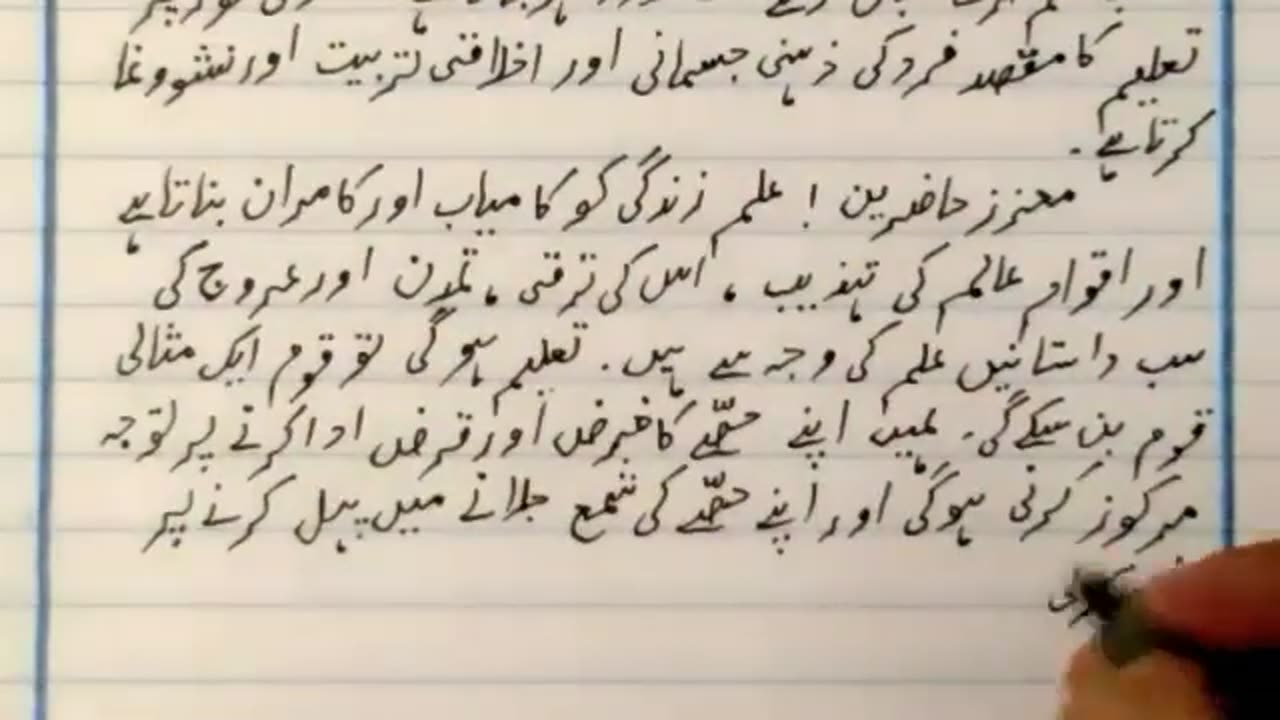 تعلیم کا مقصد فرد کی ذہنی جسمانی اور اخلاقی تربیت اور نشوونما
کرتا ہے۔
معزز حاضرین ! علم زندگی کو کامیاب اور کامران بناتا ہے
اور اقوام عالم کی تہذیب ، اس کی ترقی ، تمدن اور عروج کی
سب داستانیں علم کی وجہ سے ہیں۔ تعلیم ہوگی تو قوم ایک مثالی
قوم بن سکے گی۔ ہمیں اپنے حصّے کا فرض اور قرض ادا کرنے پر توجہ
مرکوز کرنی ہوگی اور اپنے حصّے کی شمع جلانے میں پہل کرنے پر